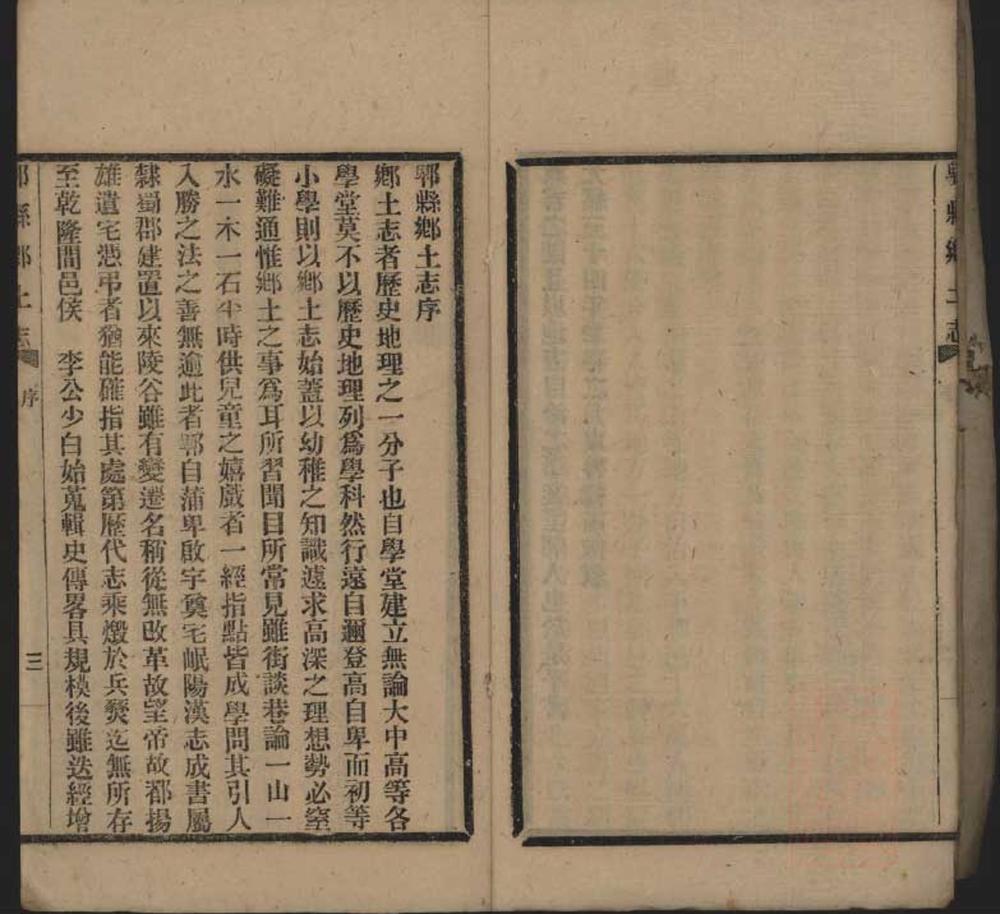 郫縣鄉土志
郫縣鄉土志序
鄉土志者歷史地理之一分子也自學堂建立無論大中高等各
學堂莫不以歷史地理列爲學科然行遠自邇登高自卑而初等
小學則以鄉土志始蓋以幼稚之知識遽求高深之理想勢必窒
礙難通惟鄉土之事爲耳所習聞目所常見雖街談巷論一山一
水一木一石尐時供兒童之嬉戲者一經指點皆成學問其引人
入勝之法之善無逾此者郫自蒲卑啟宇奠宅岷陽漢志成書屬
隸蜀郡建置以來陵谷雖有變遷名稱從無改革故望帝故都揚
雄遺宅憑弔者猶能確指其處第歷代志乘燬於兵燹迄無所存
至乾隆間邑侯　李公少白始蒐輯史傳畧具規模後雖迭經增
郫縣鄉土志　序　三